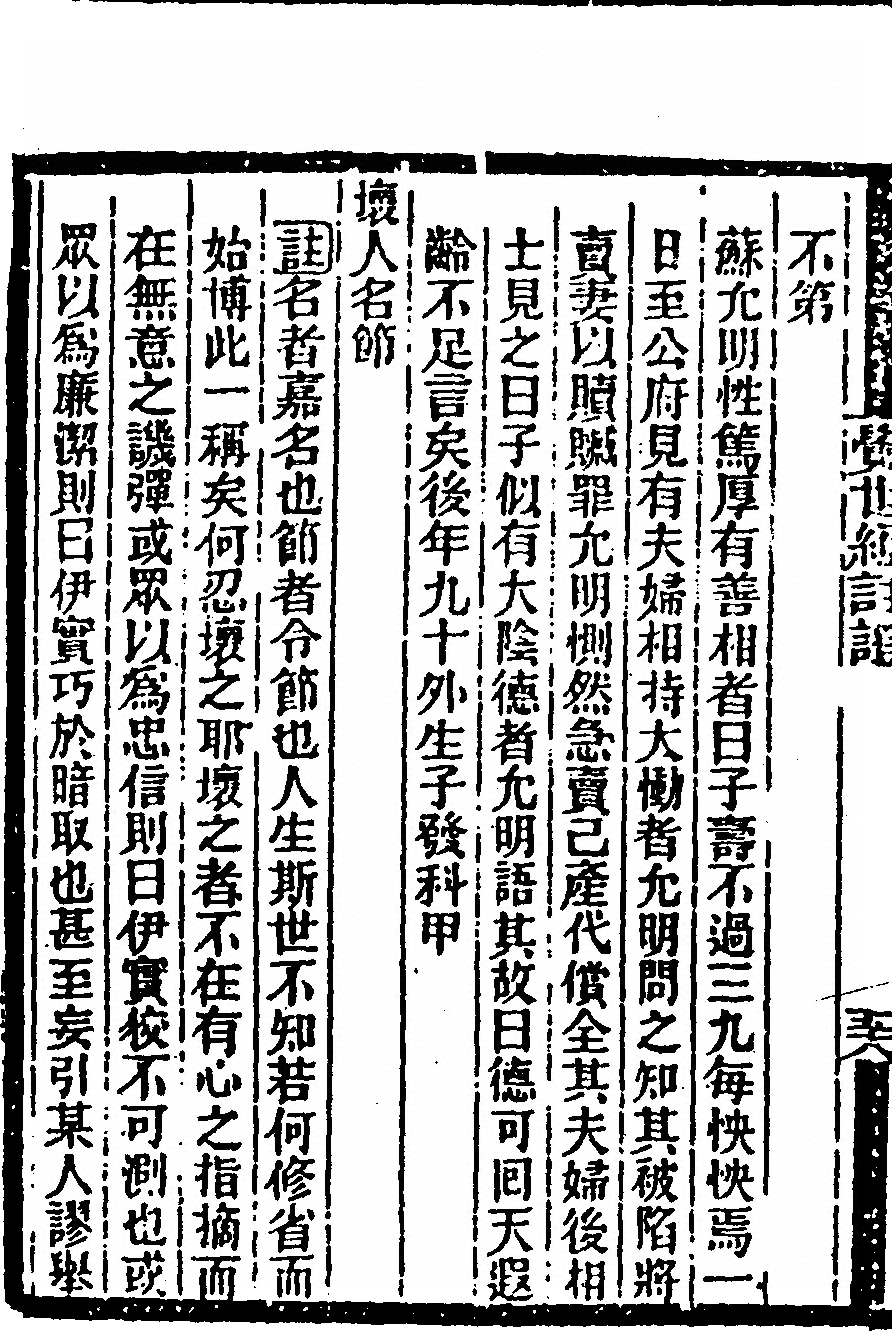 覺世經註證
五六
不第
蘇允明性篤厚有善相者曰子壽不過三九每怏怏焉一
日至公府見有夫婦相持大慟者允明問之知其被陷將
賣妻以贖贓罪允明惻然急賣己產代償全其夫婦後相
士見之曰子似有大陰德者允明語其故曰德可回天遐
齡不足言矣後年九十外生子發科甲
壞人名節
註名者嘉名也節者令節也人生斯世不知若何修省而
始博此一稱矣何忍壞之耶壞之者不在有心之指摘而
在無意之譏彈或眾以為忠信則曰伊實狡不可測也或
眾以為廉潔則曰伊實巧於暗取也甚至妄引某人謬舉